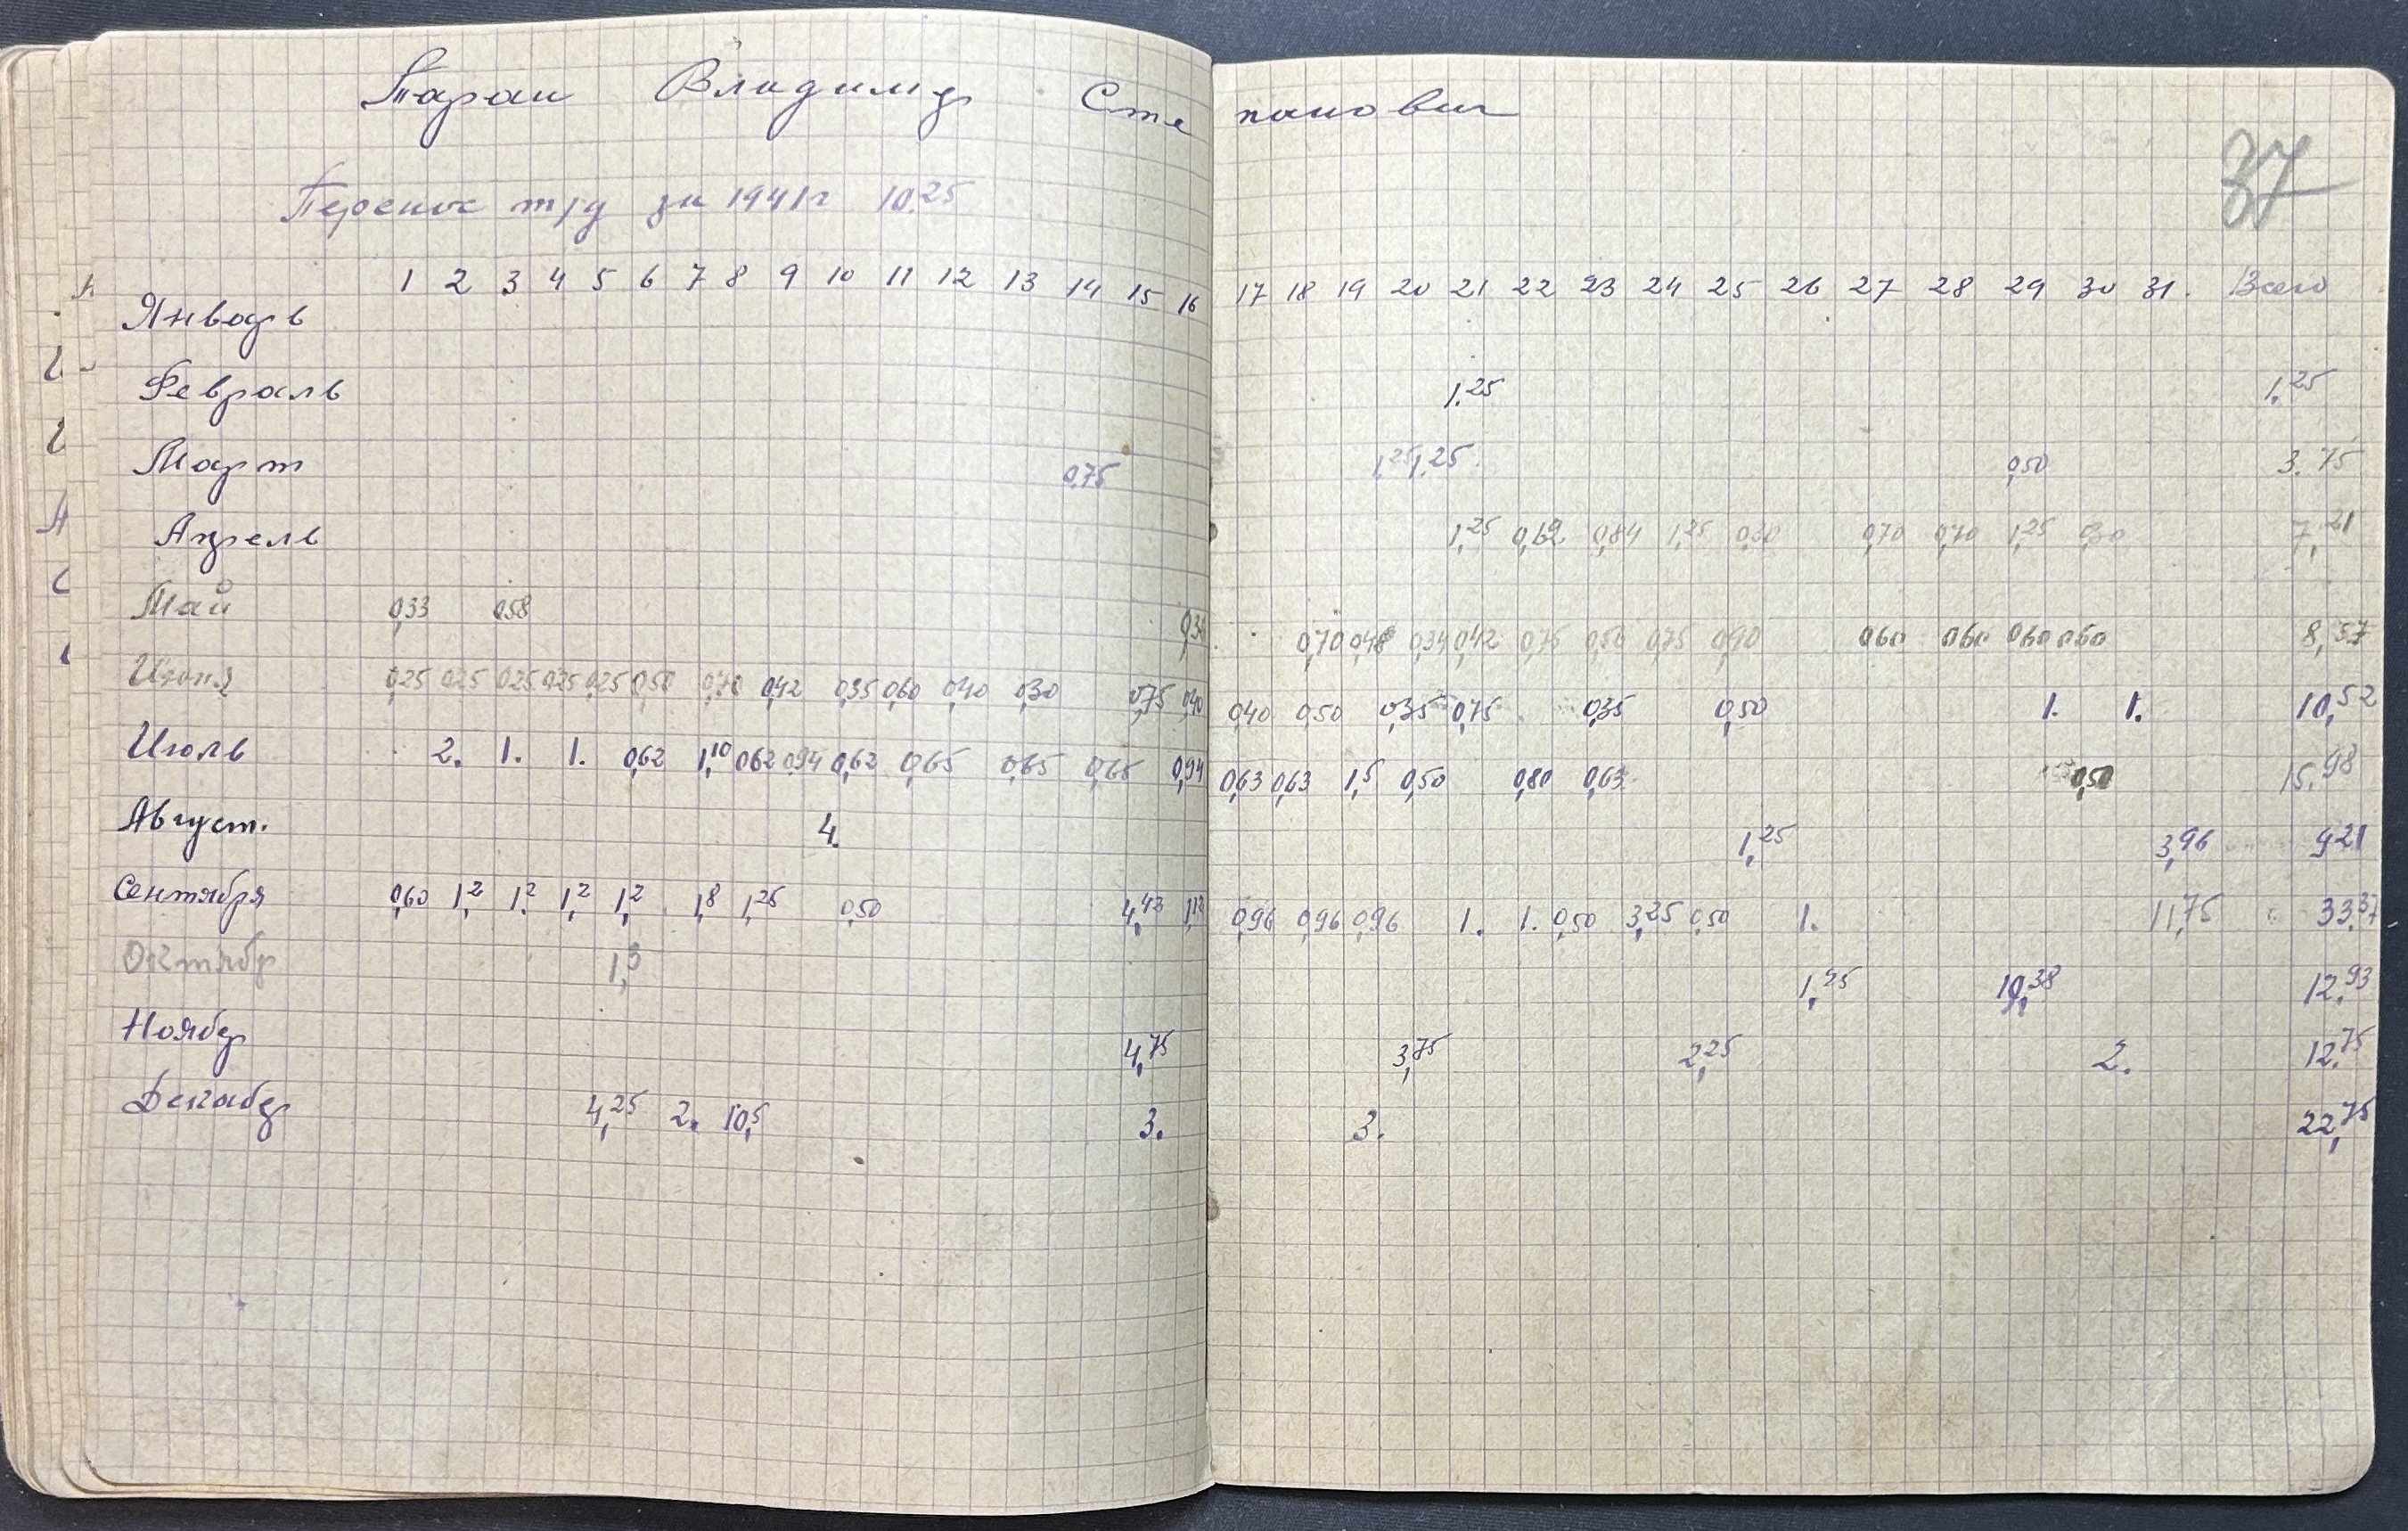 Таран Владимир Степанович
37
Перенос т/д за 1941г 10.25
1 2 3 4 5 6 7 8 9 10 11 12 13 14 15 16 17 18 19 20 21 22 23 24 25 26 27 28 29 30 31. Всего
Январь
Февраль 1.25 1.25
Март 0,75 1,25 1.25 0,50 3.75
Апрель 1,25 0,62 0,84 1,25 0,30 0,70 0,70 1,25 0,30 7,21
Май 0,33 0,58 0,34 0,70 0,48 0,34 0,42 0,75 0,50 0,75 0,90 0,60 0,60 0,60 0,60 8,57
Июня 0,25 0,25 0,25 0,25 0,25 0,50 0,70 0,42 0,35 0,60 0,40 0,30 0,75 0,40 0,40 0,50 0,35 0,75 0,35 0,50 1. 1. 10,52
Июль 2. 1. 1. 0,62 1,10 0,62 0,94 0,62 0,65 0,65 0,65 0,94 0,63 0,63 1,5 0,50 0,80 0,63 0,50 15.98
Август. 4. 1,25 3,96 9,21
Сентября 0,60 1,2 1,2 1,2 1,2 1,8 1,25 0,50 4,42 1,12 0,96 0,96 0,96 1. 1. 0,50 3,25 0,50 1. 11,75 33.37
Октябр 1,3 1,25 10,38 12,93
Ноябр 4,75 3,75 2,25 2. 12.75
Декабр 4,25 2. 10,5 3. 3. 22,75